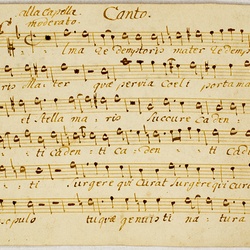 alla Capella Canto.
moderato.
lma Redemptoris mater Redemp
ris Mater quæ pervia Coeli porta ma
ti Stella maris Succure Caden
ti Caden ti Caden ti
ti Surgere qui Curat Surgere qui Cura
populo tu quæ genuisti natura